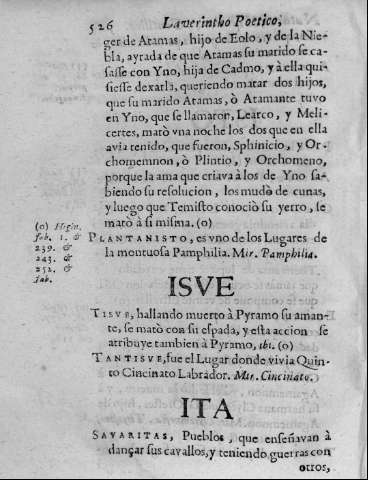 526 Laverintho Poetico,
ger de Atamas, hijo de Eolo, y de la Nie-
bla, ayrada de que Atamas su marido se ca-
sasse con Yno, hija de Cadmo, y à ella qui-
siesse dexarla, queriendo matar dos hijos,
que su marido Atamas, ò Atamante tuvo
en Yno, que se llamaron, Learco, y Meli-
certes, matò vna noche los dos que en ella
avia tenido, que fueron, Sphinicio, y Or-
chomemnon, ò Plintio, y Orchomeno,
porque la ama que criava à los de Yno sa-
biendo su resolucion, los mudò de cunas,
y luego que Temisto conociò su yerro, se
matò à si misma. (o)
(o) Higin.
fab. 1. &
239. &
243. &
252. &
fab.
PLANTANISTO, es vno de los Lugares de
la montuosa Pamphilia. Mir. Pamphilia.
ISVE
TISVE, hallando muerto à Pyramo su aman-
te, se matò con su espada, y esta accion se
atribuye tambien à Pyramo, ibi. (o)
TANTISVE, fue el Lugar donde vivia Quin-
to Cincinato Labrador. Mir. Cincinato.
ITA
SAVARITAS, Pueblos, que enseñavan à
dançar sus cavallos, y teniendo guerras con
otros,